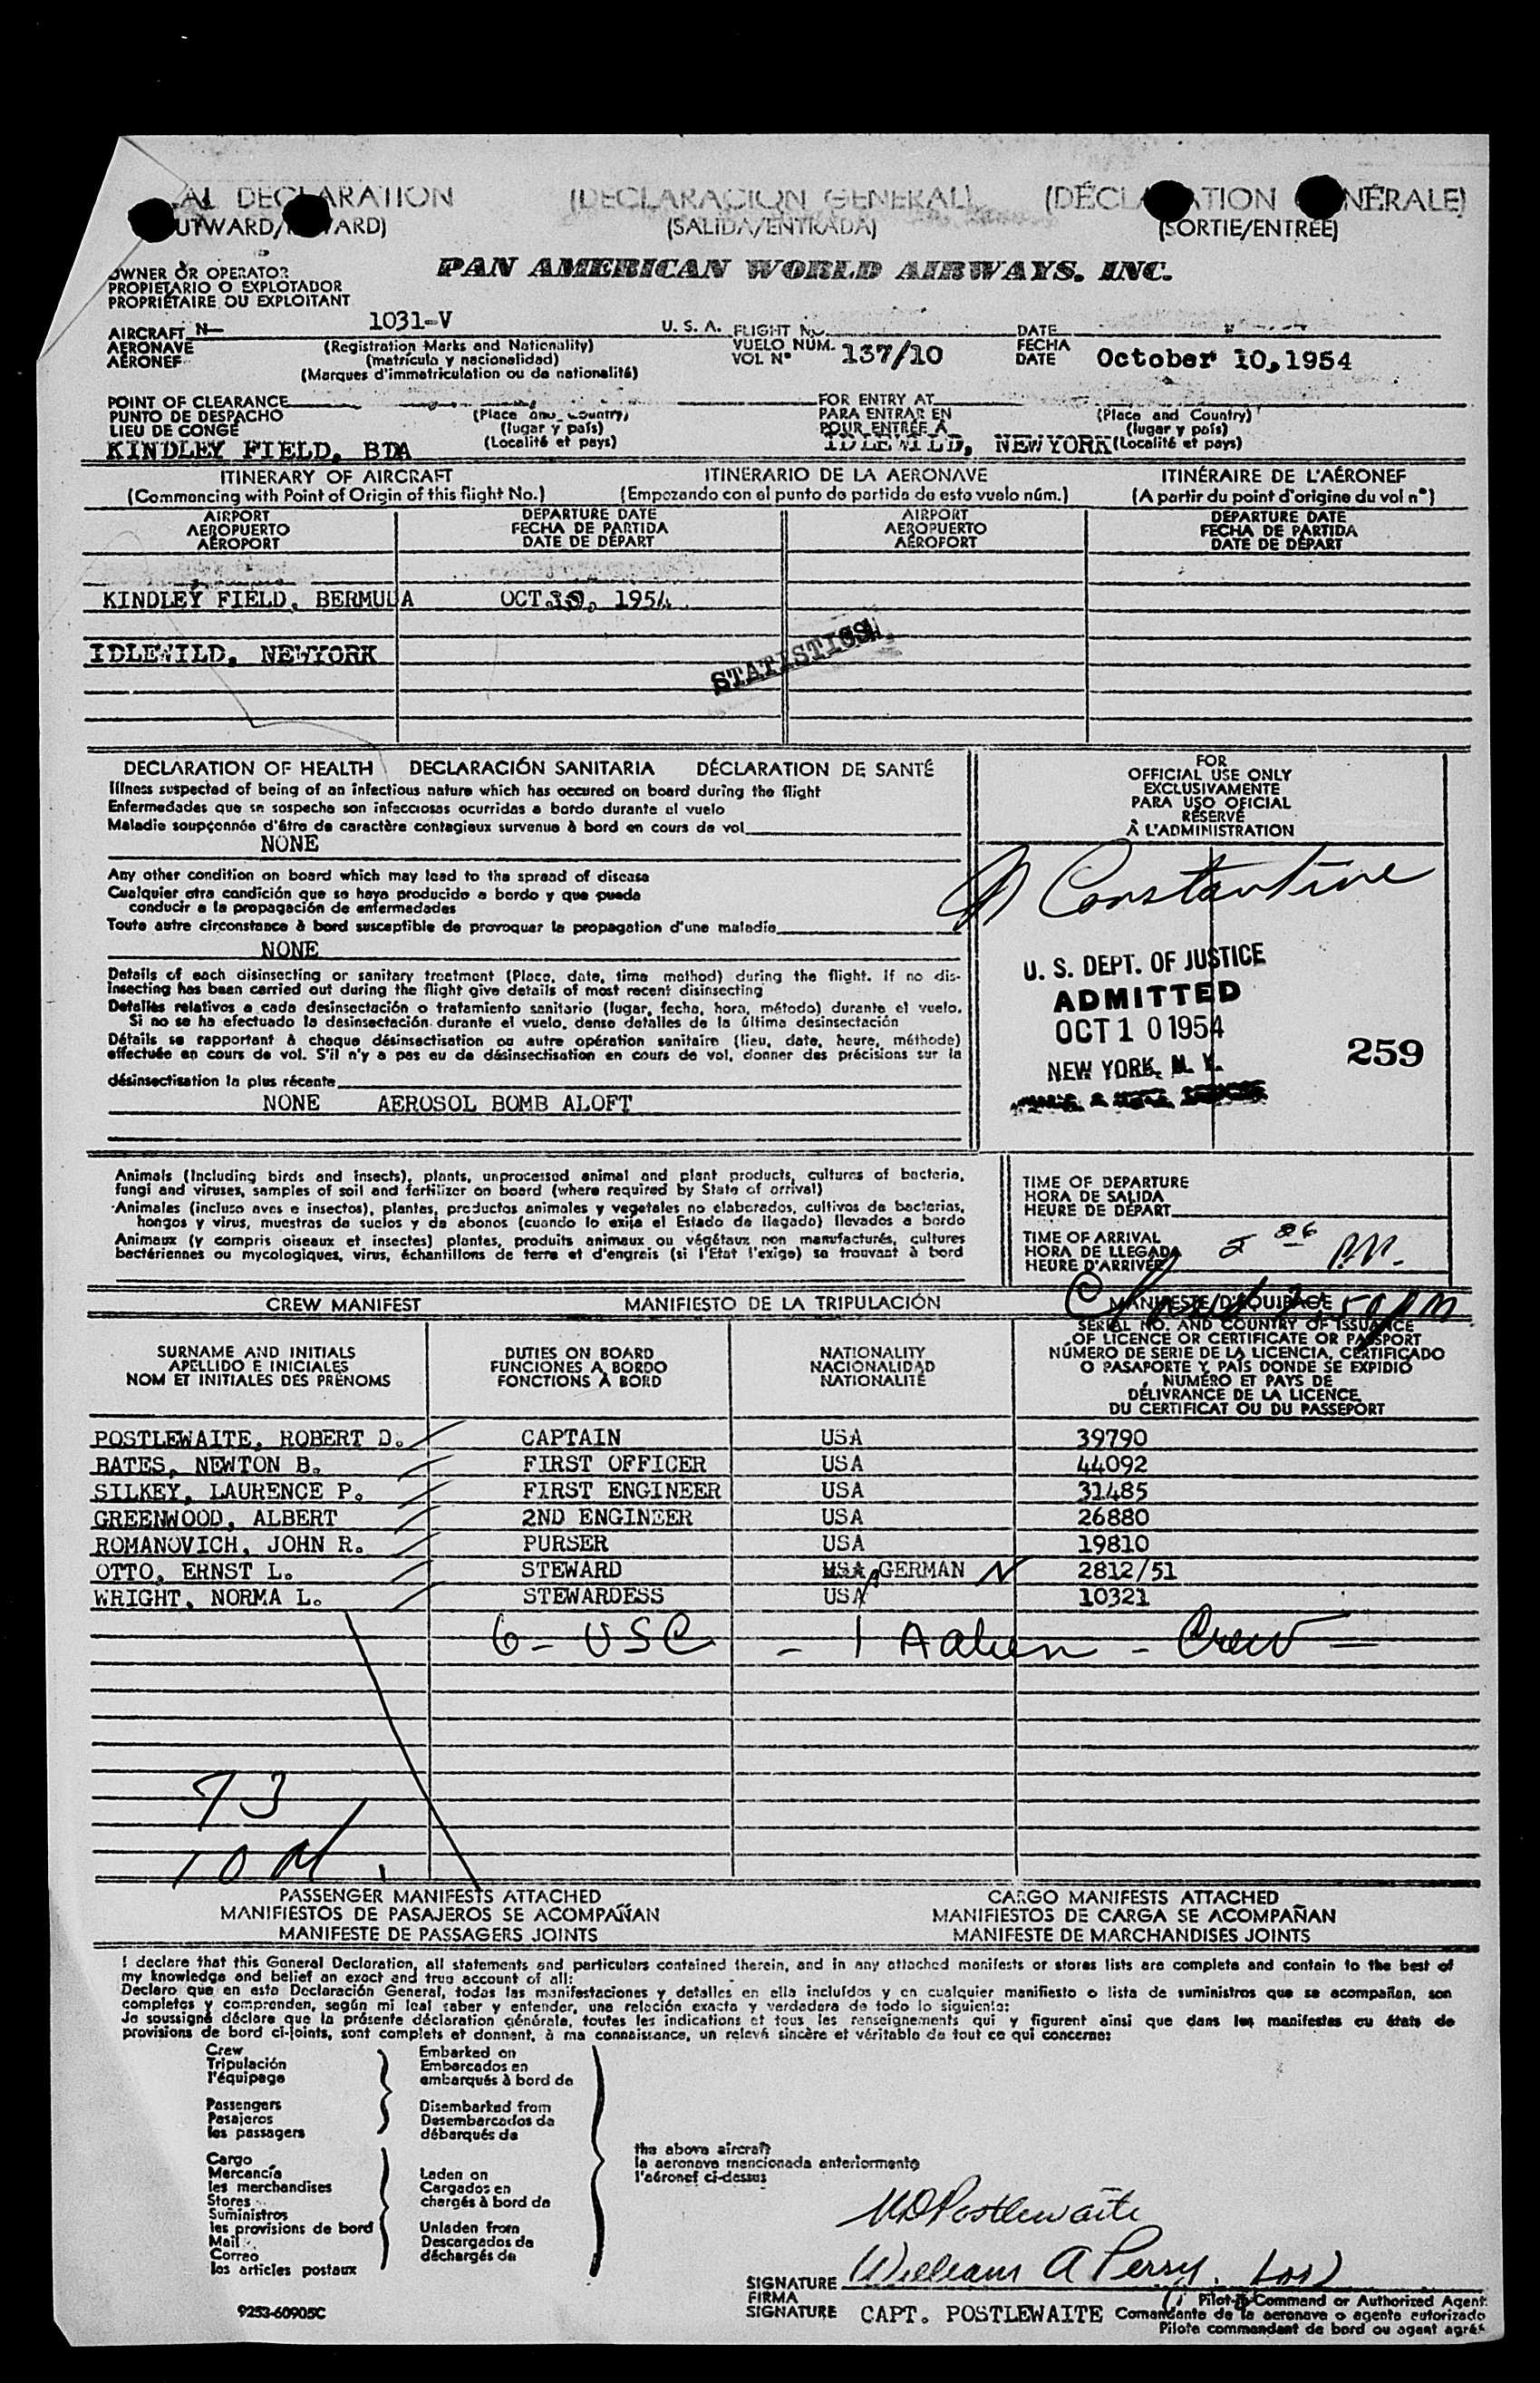 AL DECLARATION (DECLARACION GENERAL) (DÉCLARATION GÉNÉRALE)
(OUTWARD/INWARD) (SALIDA/ENTRADA) (SORTIE/ENTRÉE)
OWNER OR OPERATOR
PROPIETARIO O EXPLOTADOR
PROPRIÉTAIRE OU EXPLOITANT
PAN AMERICAN WORLD AIRWAYS, INC.
AIRCRAFT N- 1031-V U. S. A.
AERONAVE
AÉRONEF
(Registration Marks and Nationality)
(matrícula y nacionalidad)
(Marques d'immatriculation ou de nationalité)
FLIGHT NO.
VUELO NÚM.
VOL N° 137/10
DATE
FECHA
DATE October 10, 1954
POINT OF CLEARANCE
PUNTO DE DESPACHO
LIEU DE CONGÉ
(Place and Country)
(lugar y país)
(Localité et pays)
KINDLEY FIELD, BDA
FOR ENTRY AT
PARA ENTRAR EN
POUR ENTRÉE A
(Place and Country)
(lugar y país)
IDLEWILD, NEWYORK (Localité et pays)
ITINERARY OF AIRCRAFT ITINERARIO DE LA AERONAVE ITINÉRAIRE DE L'AÉRONEF
(Commencing with Point of Origin of this flight No.) (Empezando con el punto de partida de este vuelo núm.) (A partir du point d'origine du vol n°)
AIRPORT DEPARTURE DATE AIRPORT DEPARTURE DATE
AEROPUERTO FECHA DE PARTIDA AEROPUERTO FECHA DE PARTIDA
AÉROPORT DATE DE DÉPART AÉROPORT DATE DE DÉPART
KINDLEY FIELD, BERMUDA OCT. 10, 1954
IDLEWILD, NEWYORK
STATISTICS
DECLARATION OF HEALTH DECLARACIÓN SANITARIA DÉCLARATION DE SANTÉ
Illness suspected of being of an infectious nature which has occured on board during the flight
Enfermedades que se sospecha son infecciosas ocurridas a bordo durante el vuelo
Maladie soupçonnée d'être de caractère contagieux survenue à bord en cours de vol
NONE
Any other condition on board which may lead to the spread of disease
Cualquier otra condición que se haya producido a bordo y que pueda
conducir a la propagación de enfermedades
Toute autre circonstance à bord susceptible de provoquer la propagation d'une maladie
NONE
Details of each disinsecting or sanitary treatment (Place, date, time method) during the flight. If no dis-
insecting has been carried out during the flight give details of most recent disinsecting
Detalles relativos a cada desinsectación o tratamiento sanitario (lugar, fecha, hora, método) durante el vuelo.
Si no se ha efectuado la desinsectación durante el vuelo, dense detalles de la última desinsectación
Détails se rapportant à chaque désinsectisation ou autre opération sanitaire (lieu, date, heure, méthode)
effectuée en cours de vol. S'il n'y a pas eu de désinsectisation en cours de vol, donner des précisions sur la
désinsectisation la plus récente
NONE AEROSOL BOMB ALOFT
FOR
OFFICIAL USE ONLY
EXCLUSIVAMENTE
PARA USO OFICIAL
RÉSERVÉ
À L'ADMINISTRATION
Constantine
U. S. DEPT. OF JUSTICE
ADMITTED
OCT 1 0 1954
NEW YORK, N. Y.
259
Animals (Including birds and insects), plants, unprocessed animal and plant products, cultures of bacteria,
fungi and viruses, samples of soil and fertilizer on board (where required by State of arrival)
Animales (incluso aves e insectos), plantas, productos animales y vegetales no elaborados, cultivos de bacterias,
hongos y virus, muestras de suelos y de abonos (cuando lo exija el Estado de llegada) llevados a bordo
Animaux (y compris oiseaux et insectes) plantes, produits animaux ou végétaux non manufacturés, cultures
bactériennes ou mycologiques, virus, échantillons de terre et d'engrais (si l'Etat l'exige) se trouvant à bord
TIME OF DEPARTURE
HORA DE SALIDA
HEURE DE DÉPART
TIME OF ARRIVAL
HORA DE LLEGADA
HEURE D'ARRIVÉE
2 26 P.M.
CREW MANIFEST MANIFIESTO DE LA TRIPULACIÓN MANIFESTE D'ÉQUIPAGE
SURNAME AND INITIALS
APELLIDO E INICIALES
NOM ET INITIALES DES PRÉNOMS
DUTIES ON BOARD
FUNCIONES A BORDO
FONCTIONS À BORD
NATIONALITY
NACIONALIDAD
NATIONALITÉ
SERIAL NO. AND COUNTRY OF ISSUANCE
OF LICENCE OR CERTIFICATE OR PASSPORT
NÚMERO DE SERIE DE LA LICENCIA, CERTIFICADO
O PASAPORTE Y PAÍS DONDE SE EXPIDIÓ
NUMÉRO ET PAYS DE
DÉLIVRANCE DE LA LICENCE
DU CERTIFICAT OU DU PASSEPORT
POSTLEWAITE, ROBERT D. CAPTAIN USA 39790
BATES, NEWTON B. FIRST OFFICER USA 44092
SILKEY, LAURENCE P. FIRST ENGINEER USA 31485
GREENWOOD, ALBERT 2ND ENGINEER USA 26880
ROMANOVICH, JOHN R. PURSER USA 19810
OTTO, ERNST L. STEWARD USA GERMAN 2812/51
WRIGHT, NORMA L. STEWARDESS USA 10321
6 - USC - 1 Aalien - Crew -
93
PASSENGER MANIFESTS ATTACHED CARGO MANIFESTS ATTACHED
MANIFIESTOS DE PASAJEROS SE ACOMPAÑAN MANIFIESTOS DE CARGA SE ACOMPAÑAN
MANIFESTE DE PASSAGERS JOINTS MANIFESTE DE MARCHANDISES JOINTS
I declare that this General Declaration, all statements and particulars contained therein, and in any attached manifests or stores lists are complete and contain to the best of
my knowledge and belief an exact and true account of all:
Declaro que en esta Declaración General, todas las manifestaciones y detalles en ella incluídos y en cualquier manifiesto o lista de suministros que se acompañan, son
completos y comprenden, según mi leal saber y entender, una relación exacta y verdadera de todo lo siguiente:
Je soussigné déclare que la présente déclaration générale, toutes les indications et tous les renseignements qui y figurent ainsi que dans les manifestes ou états de
provisions de bord ci-joints, sont complets et donnent, à ma connaissance, un relevé sincère et véritable de tout ce qui concerne:
Crew
Tripulación
l'équipage
Passengers
Pasajeros
les passagers
Cargo
Mercancía
les merchandises
Stores
Suministros
les provisions de bord
Mail
Correo
los articles postaux
Embarked on
Embarcados en
embarqués à bord de
Disembarked from
Desembarcados de
débarqués de
Laden on
Cargados en
chargés à bord de
Unladen from
Descargados de
déchargés de
the above aircraft
la aeronave mencionada anteriormente
l'aéronef ci-dessus
Postlewaite
William A Perry
SIGNATURE
FIRMA
SIGNATURE CAPT. POSTLEWAITE
Pilot-in-Command or Authorized Agent
Comandante de la aeronave o agente autorizado
Pilote commandant de bord ou agent agréé
9253-60905C